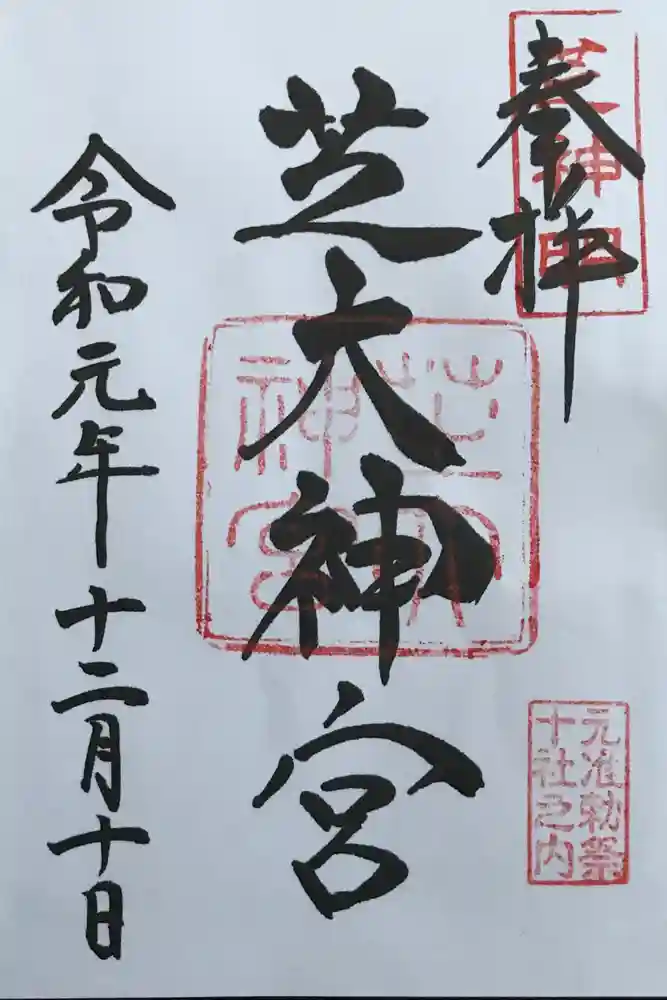 奉拝
芝大神宮
令和元年十二月十日
芝大
神宮
元准勅祭
十社之内